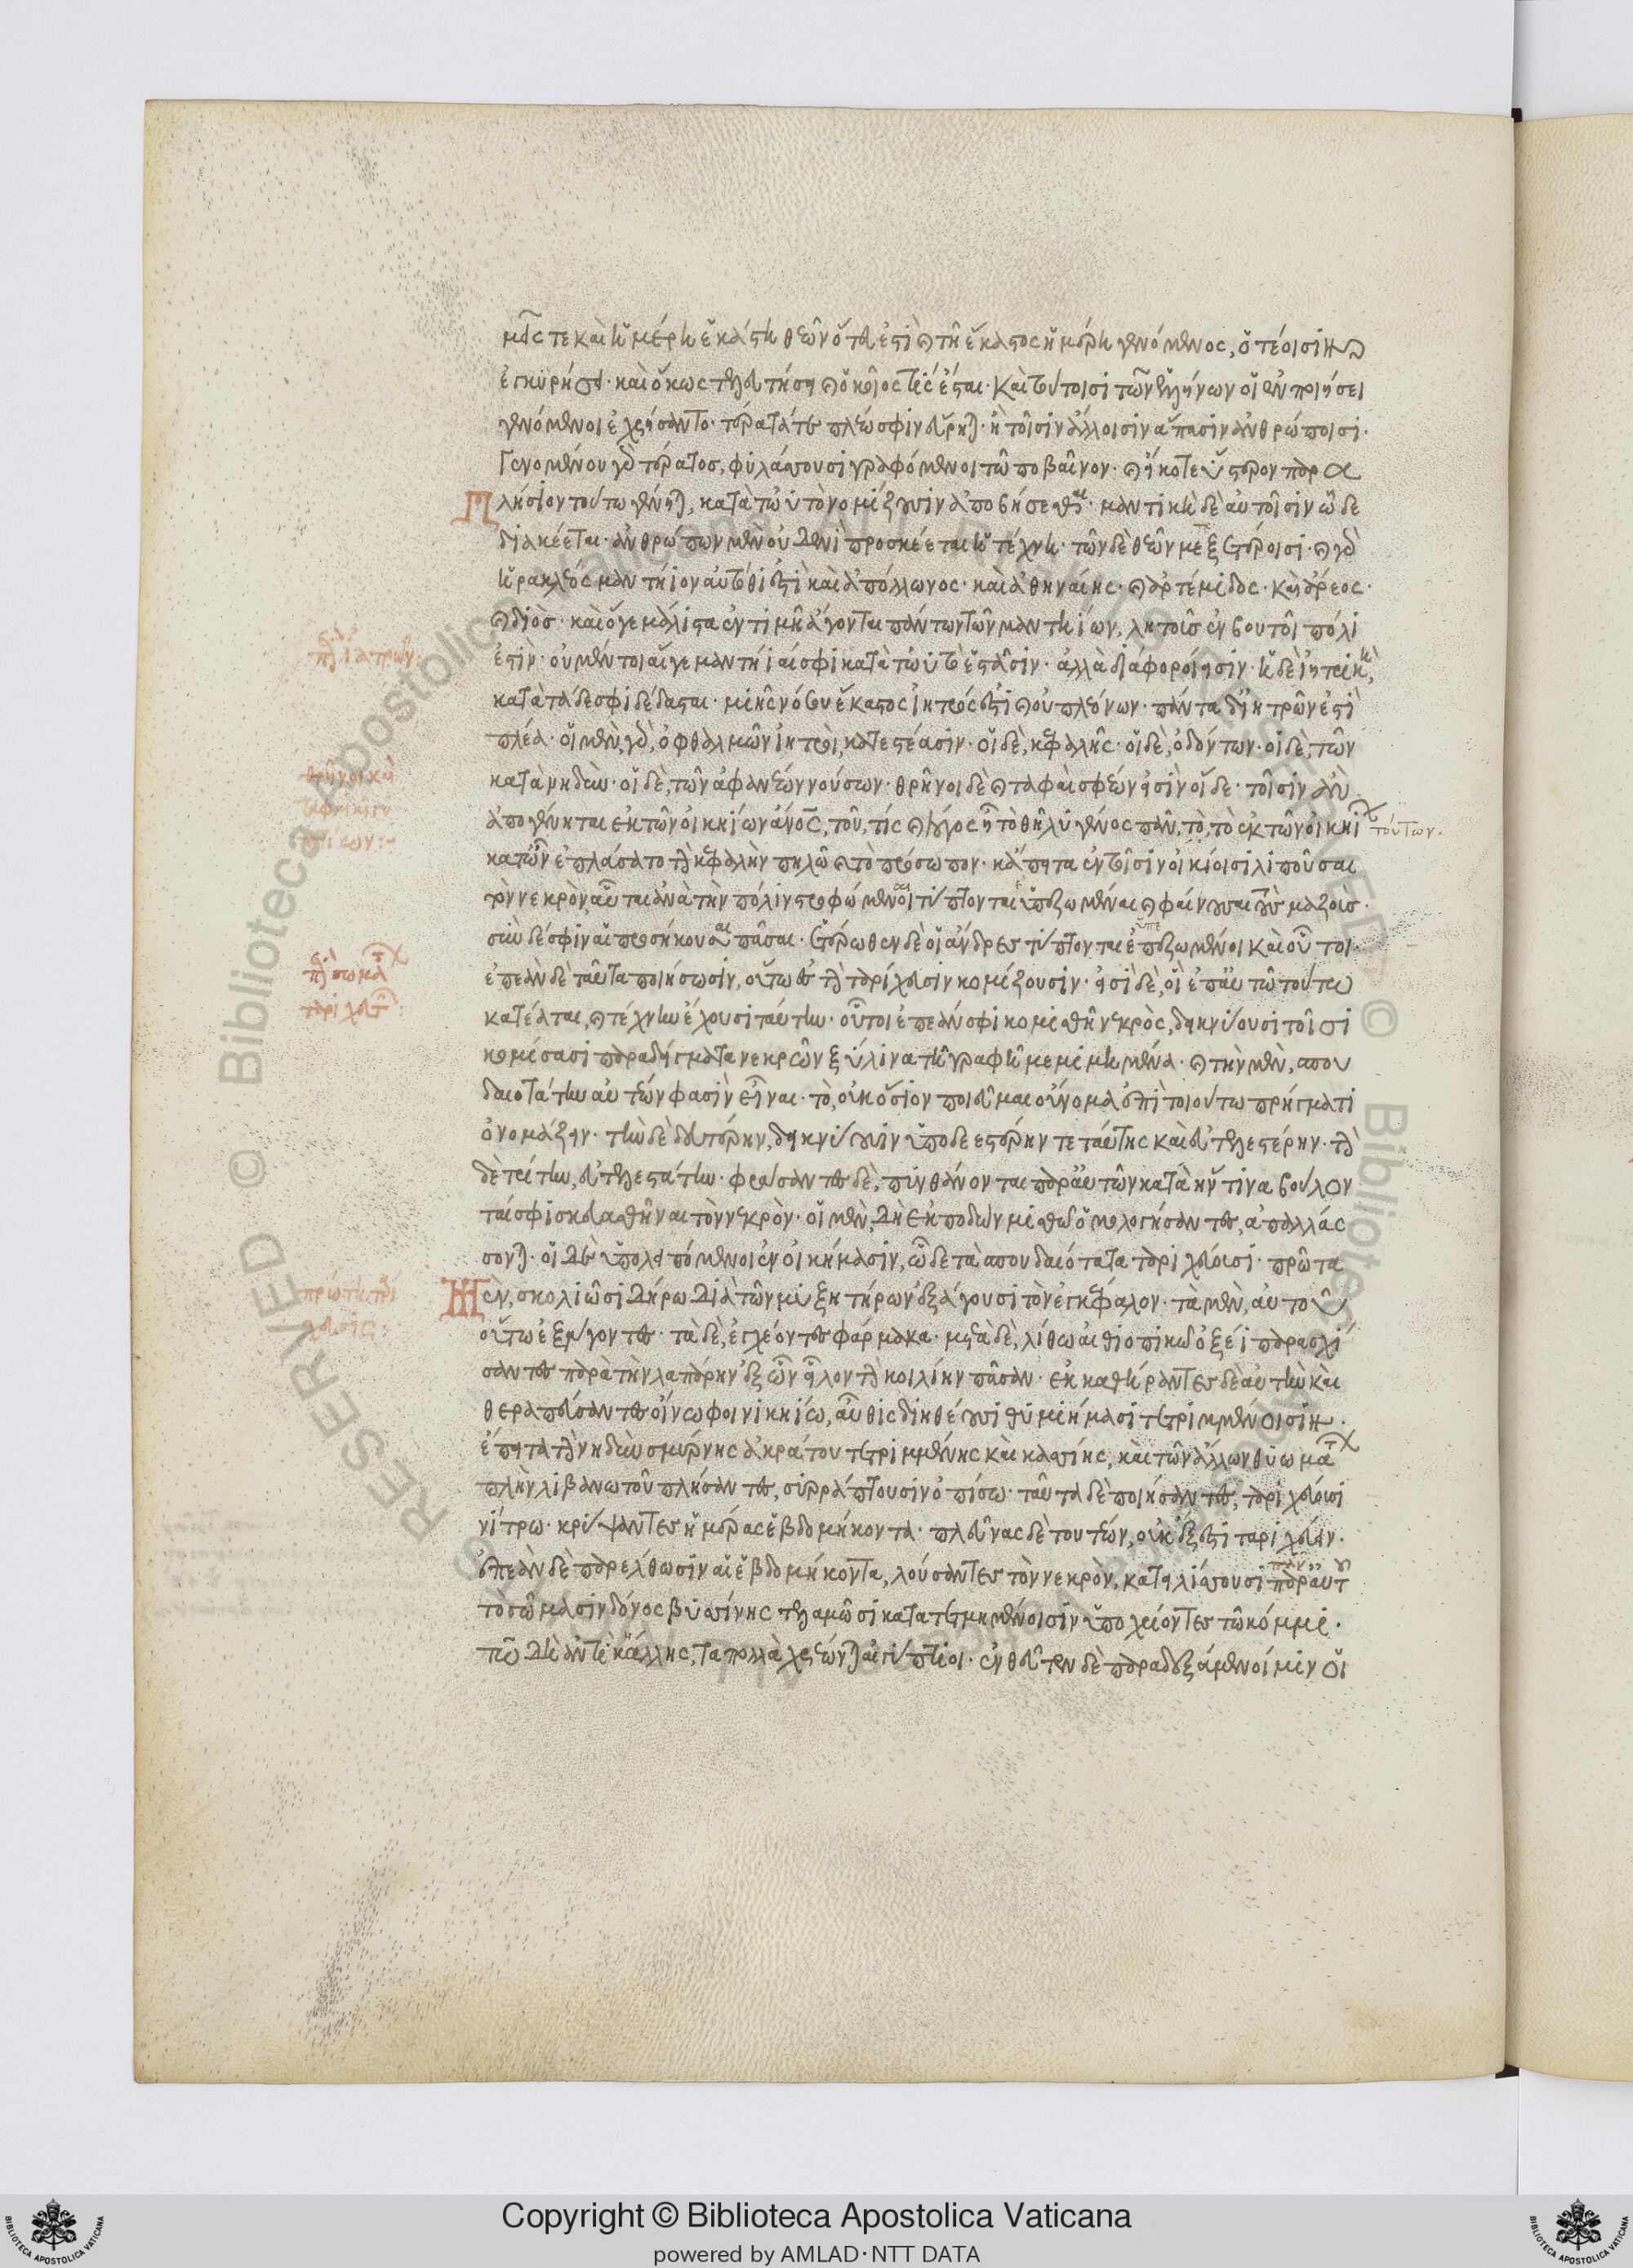 μείς τε καὶ ἡμέρη ἑκάστη θεῶν ὅτευ ἐστί καὶ τῇ ἕκαστος ἡμέρῃ γενόμενος, ὁτέοισιν
ἐγκυρήσει· καὶ ὅκως τελευτήσει καὶ ὁκοῖός τις ἔσται· καὶ τούτοισι τῶν ἑλλήνων οἱ ἐν ποιήσει
γενόμενοι ἐχρήσαντο· τέρατά τε πλέω σφιν εὕρηται ἢ τοῖσιν ἄλλοισιν ἅπασιν ἀνθρώποισι·
Γενομένου γὰρ τέρατος, φυλάσσουσι γραφόμενοι τὠποβαῖνον· καὶ ἤν κοτε ὕστερον παρα
πλήσιον τούτῳ γένηται, κατὰ τὠυτὸ νομίζουσιν ἀποβήσεσθαι· μαντικὴ δὲ αὐτοῖσιν ὧδε
διακέεται· ἀνθρώπων μὲν οὐδενὶ προσκέεται ἡ τέχνη· τῶν δὲ θεῶν μετεξετέροισι· καὶ γὰρ
ἡρακλέος μαντήιον αὐτόθι ἐστὶ καὶ ἀπόλλωνος· καὶ ἀθηναίης· καὶ ἀρτέμιδος· καὶ ἄρεος·
καὶ διός· καὶ ὅ γε μάλιστα ἐν τιμῇ ἄγονται πάντων τῶν μαντηίων, λητοῖς ἐν βουτοῖ πόλι
ἐστιν· οὐ μέντοι αἵ γε μαντηίαι σφι κατὰ τὠυτὸ ἑστᾶσιν· ἀλλὰ διάφοροί εἰσιν· ἡ δὲ ἰητρικὴ,
κατὰ τάδε σφι δέδασται· μιῆς νόσου ἕκαστος ἰητρός ἐστι καὶ οὐ πλεόνων· πάντα δ' ἰητρῶν ἐστὶ
πλέα· οἱ μὲν γὰρ, ὀφθαλμῶν ἰητροὶ, κατεστέασιν· οἱ δὲ, κεφαλῆς· οἱ δὲ, ὀδόντων· οἱ δὲ, τῶν
κατὰ νηδύν· οἱ δὲ, τῶν ἀφανέων νούσων· θρῆνοι δὲ καὶ ταφαὶ σφέων εἰσὶν οἵδε· τοῖσιν ἂν
ἀπογένηται ἐκ τῶν οἰκηίων ἄνος, τοῦ, τίς καὶ λόγος ᾖ τὸ θῆλυ γένος πᾶν, τὸ, τὸ ἐκ τῶν οἰκηί τούτων.
κατ' ὦν ἐπλάσατο τὴν κεφαλὴν πηλῷ καὶ τὸ πρόσωπον· κἄπειτα ἐν τοῖσιν οἰκίοισι λιποῦσαι
τὸν νεκρὸν, αὗται ἀνὰ τὴν πόλιν στρωφώμεναι τύπτονται ὑπεζωμέναι καὶ φαίνουσαι τοὺς μαζοὺς·
σὺν δέ σφιν αἱ προσήκουσαι πᾶσαι· ἑτέρωθεν δὲ οἱ ἄνδρες τύπτονται ἐπεζωμένοι καὶ οὗτοι·
ἐπεὰν δὲ ταῦτα ποιήσωσιν, οὕτω ἐς τὴν ταρίχευσιν κομίζουσιν· εἰσὶ δὲ, οἳ ἐπ' αὐτῷ τούτῳ
κατέαται, καὶ τέχνην ἔχουσι ταύτην· οὗτοι ἐπεάν σφι κομισθῇ νεκρὸς, δεικνύουσι τοῖσι
κομίσασι παραδείγματα νεκρῶν ξύλινα τῇ γραφῇ μεμιμημένα· καὶ τὴν μὲν, σπου
δαιοτάτην αὐτέων φασὶν εἶναι· τὸ, οὐκ ὅσιον ποιεῦμαι οὔνομα ἐπὶ τοιούτῳ πρήγματι
ὀνομάζειν· τὴν δὲ δευτέρην, δεικνύουσιν ὑποδεεστέρην τε ταύτης καὶ εὐτελεστέρην· τὴν
δὲ τρίτην, εὐτελεστάτην· φράσαντες δὲ, πυνθάνονται παρ' αὐτῶν κατὰ ἥντινα βούλον
ταί σφι σκευασθῆναι τὸν νεκρὸν· οἱ μὲν, δὴ ἐκποδὼν μισθῷ ὁμολογήσαντες, ἀπαλλάσ
σονται· οἱ δὲ ὑπολειπόμενοι ἐν οἰκήμασιν, ὧδε τὰ σπουδαιότατα ταριχεύουσι· πρῶτα
μὲν, σκολιῷ σιδήρῳ διὰ τῶν μυξητήρων ἐξάγουσι τὸν ἐγκέφαλον· τὰ μὲν, αὐτοῦ
οὕτω ἐξάγοντες· τὰ δὲ, ἐγχέοντες φάρμακα· μετὰ δὲ, λίθῳ αἰθιοπικῷ ὀξέι παρασχί
σαντες παρὰ τὴν λαπάρην ἐξ ὧν εἷλον τὴν κοιλίην πᾶσαν· ἐκκαθήραντες δὲ αὐτὴν καὶ
διηθέουσι θυμιήμασι τετριμμένοισιν·
ἔπειτα τὴν νηδὺν σμύρνης ἀκράτου τετριμμένης καὶ κασίης, καὶ τῶν ἄλλων θυωμάτων
πλὴν λιβανωτοῦ πλήσαντες, συρράπτουσιν ὀπίσω· ταῦτα δὲ ποιήσαντες, ταριχεύουσι
νίτρῳ· κρύψαντες ἡμέρας ἑβδομήκοντα· πλεῦνας δὲ τουτέων, οὐκ ἔξεστι ταριχεύειν·
ἐπεὰν δὲ παρέλθωσιν αἱ ἑβδομήκοντα, λούσαντες τὸν νεκρὸν, κατειλίσσουσι πᾶν αὐτοῦ
τὸ σῶμα σινδόνος βυσσίνης τελαμῶσι κατατετμημένοισιν ὑποχρίοντες τῷ κόμμι·
τῷ δὴ ἀντὶ κόλλης, τὰ πολλὰ χρέωνται αἰγύπτιοι· ἐνθεῦτεν δὲ παραδεξάμενοί μιν οἱ